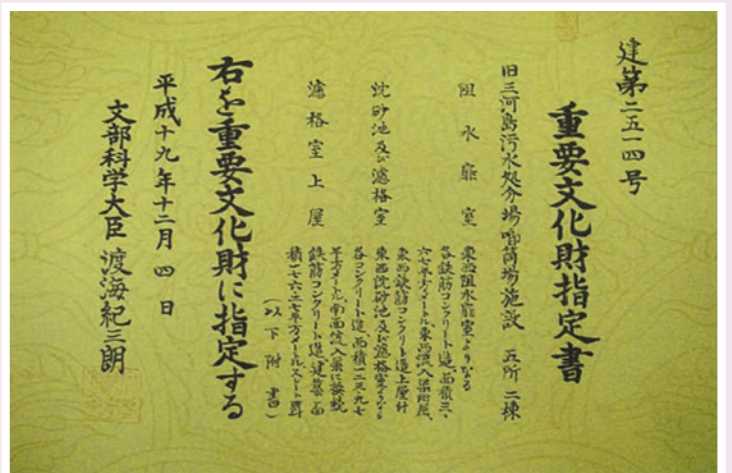 建第二五一四号
重要文化財指定書
旧三河島汚水処分場喞筒場施設　五所 二棟
阻水扉室
東西阻水扉室よりなる
各鉄筋コンクリート造、面積三・
六七平方メートル、東西流入渠附属、
東西鉄筋コンクリート造上屋付
沈砂池及び濾格室
東西沈砂池及び濾格室よりなる
各コンクリート造、面積一二三・九七
平方メートル、南面流入渠に接続
濾格室上屋
鉄筋コンクリート造、建築面
積一七六・二七平方メートル、スレート葺
(以下附書)
右を重要文化財に指定する
平成十九年十二月四日
文部科学大臣 渡海紀三朗